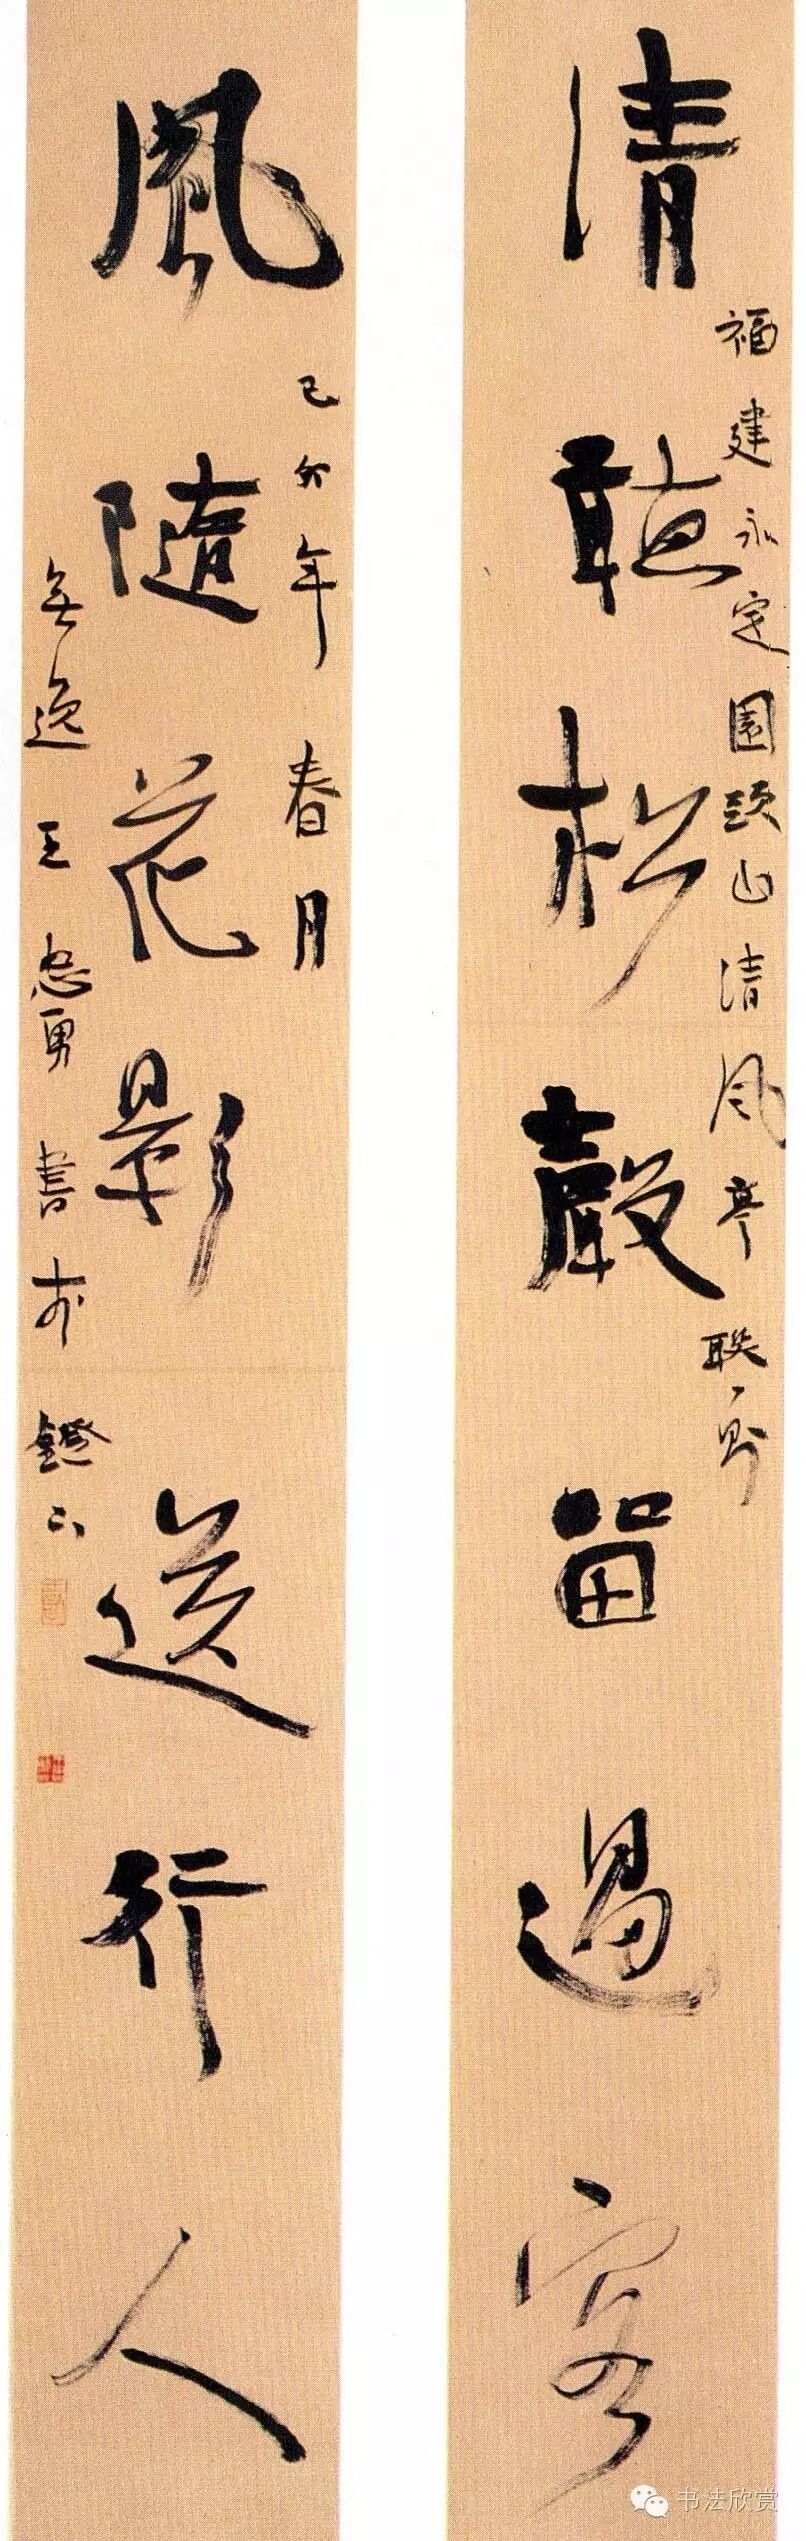 清聽松聲留過客
福建永定圆頭山清风亭聯一则
風隨花影送行人
己卯年春月
無逸王忠勇書於鐙下
书法欣赏